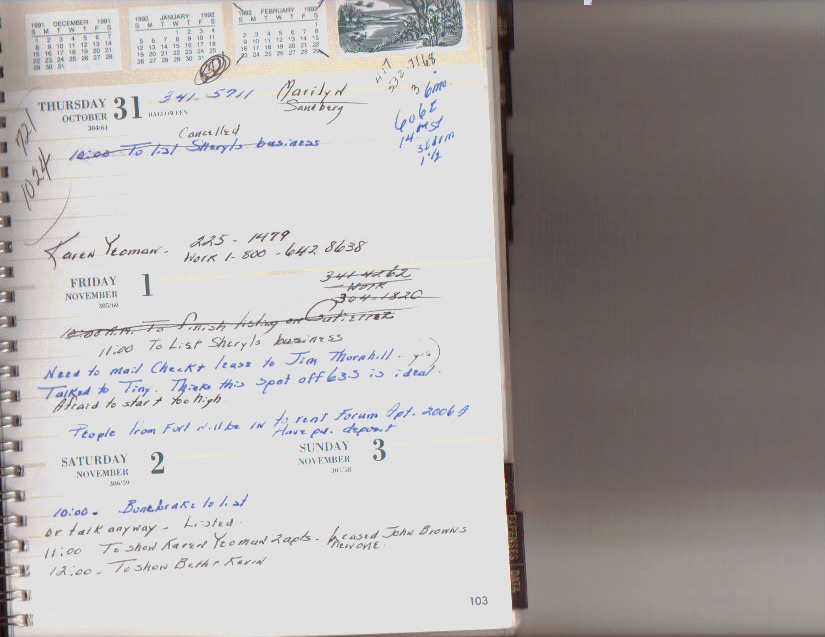 1991 DECEMBER 1991
S M T W T F S
1 2 3 4 5 6 7
8 9 10 11 12 13 14
15 16 17 18 19 20 21
22 23 24 25 26 27 28
29 30 31
1992 JANUARY 1992
S M T W T F S
1 2 3 4
5 6 7 8 9 10 11
12 13 14 15 16 17 18
19 20 21 22 23 24 25
26 27 28 29 30 31
1992 FEBRUARY 1992
S M T W T F S
1
2 3 4 5 6 7 8
9 10 11 12 13 14 15
16 17 18 19 20 21 22
23 24 25 26 27 28 29
417
532-7168
THURSDAY 31
OCTOBER
304/61
HALLOWEEN
341-5711
Marilyn
Sandberg
3 6mo.
606 E
14th St
3 bdrm
1 1/2
721
1024
Cancelled
10:00 To list Sheryls business
Karen Yeoman - 225-1479
Work 1-800-642 8638
FRIDAY 1
NOVEMBER
305/60
341 4262
Work
304-1820
10:00 A.M. To finish listing on Gutierrez
11:00 To List Sheryls business
Need to mail Check + lease to Jim Thornhill. yes
Talked to Tiny. Thinks this spot off 635 is ideal.
Afraid to start too high.
People from Fort will be in to rent Forum Apt. 2006 A
Have pd. deposit
SATURDAY 2
NOVEMBER
306/59
SUNDAY 3
NOVEMBER
307/58
10:00. Bonebrake to list
or talk anyway - Listed.
11:00 To show Karen Yeoman 2 apts. Leased John Browns
New one.
12:00 - To show Beth + Kevin
EXPENSES
DATA
103